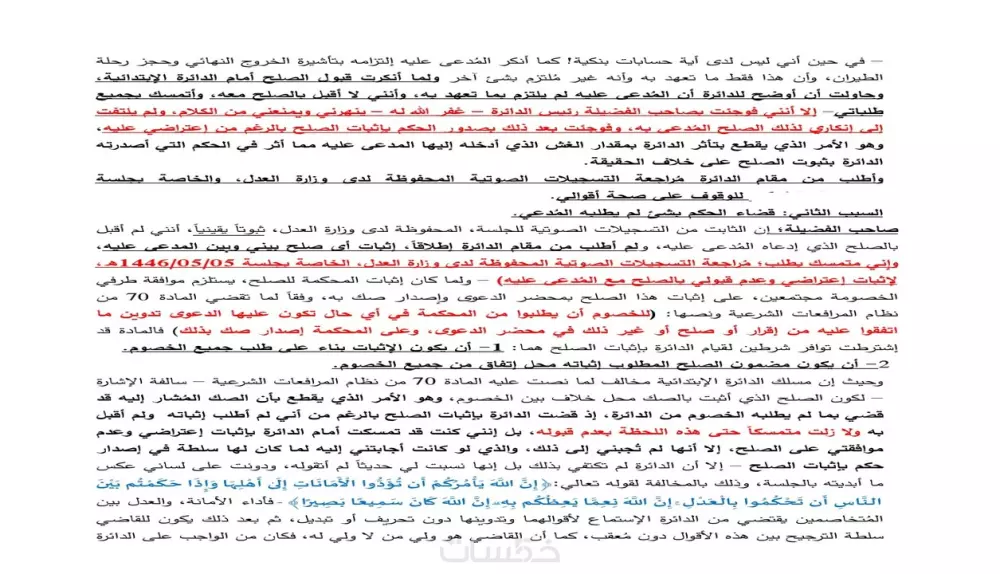 – في حين أني ليس لدى أية حسابات بنكية! كما أنكر المُدعى عليه إلتزامه بتأشيرة الخروج النهائي وحجز رحلة
الطيران، وأن هذا فقط ما تعهد به وأنه غير مُلتزم بشئ آخر ولما أنكرت قبول الصلح أمام الدائرة الإبتدائية،
وحاولت أن أوضح للدائرة أن المُدعى عليه لم يلتزم بما تعهد به، وأنني لا أقبل بالصلح معه، وأتمسك بجميع
طلباتي– إلا أنني فوجئت بصاحب الفضيلة رئيس الدائرة – غفر الله له – ينهرني ويمنعني من الكلام، ولم يلتفت
إلى إنكاري لذلك الصلح المُدعى به، وفوجئت بعد ذلك بصدور الحكم بإثبات الصلح بالرغم من إعتراضي عليه،
وهو الأمر الذي يقطع بتأثر الدائرة بمقدار الغش الذي أدخله إليها المدعى عليه مما أثر في الحكم التي أصدرته
الدائرة بثبوت الصلح على خلاف الحقيقة.
وأطلب من مقام الدائرة مُراجعة التسجيلات الصوتية المحفوظة لدى وزارة العدل، والخاصة بجلسة
للوقوف على صحة أقوالي.
السبب الثاني: قضاء الحكم بشئ لم يطلبه المُدعي.
صاحب الفضيلة؛ إن الثابت من التسجيلات الصوتية للجلسة، المحفوظة لدى وزارة العدل، ثبوتاً يقينياً، أنني لم أقبل
بالصلح الذي إدعاه المُدعى عليه، ولم أطلب من مقام الدائرة إطلاقاً، إثبات أى صلح بيني وبين المدعى عليه،
وإني متمسك بطلب؛ مُراجعة التسجيلات الصوتية المحفوظة لدى وزارة العدل، الخاصة بجلسة 1446/05/05هـ،
لإثبات إعتراضي وعدم قبولي بالصلح مع المُدعى عليه) – ولما كان إثبات المحكمة للصلح، يستلزم موافقة طرفي
الخصومة مجتمعين، على إثبات هذا الصلح بمحضر الدعوى وإصدار صك به، وفقاً لما تقضي المادة 70 من
نظام المرافعات الشرعية ونصها: (للخصوم أن يطلبوا من المحكمة في أي حال تكون عليها الدعوى تدوين ما
اتفقوا عليه من إقرار أو صلح أو غير ذلك في محضر الدعوى، وعلى المحكمة إصدار صك بذلك) فالمادة قد
إشترطت توافر شرطين لقيام الدائرة بإثبات الصلح هما: 1– أن يكون الإثبات بناء على طلب جميع الخصوم.
2– أن يكون مضمون الصلح المطلوب إثباته محل إتفاق من جميع الخصوم.
وحيث إن مسلك الدائرة الإبتدائية مخالف لما نصت عليه المادة 70 من نظام المرافعات الشرعية – سالفة الإشارة
– لكون الصلح الذي أثبت بالصك محل خلاف بين الخصوم، وهو الأمر الذي يقطع بأن الصك المُشار إليه قد
قضي بما لم يطلبه الخصوم من الدائرة، إذ قضت الدائرة بإثبات الصلح بالرغم من أني لم أطلب إثباته ولم أقبل
به ولا زلت متمسكاً حتى هذه اللحظة بعدم قبوله، بل إنني كنت قد تمسكت أمام الدائرة بإثبات إعتراضي وعدم
موافقتي على الصلح، إلا أنها لم تُجبني إلى ذلك، والذي لو كانت أجابتني إليه لما كان لها سلطة في إصدار
حكم بإثبات الصلح – إلا أن الدائرة لم تكتفي بذلك بل إنها نسبت لي حديثاً لم أتقوله، ودونت على لساني عكس
ما أبديته بالجلسة، وذلك بالمخالفة لقوله تعالي:﴿إِنَّ اللَّهَ يَأْمُرُكُمْ أَن تُؤَدُّوا الْأَمَانَاتِ إِلَىٰ أَهْلِهَا وَإِذَا حَكَمْتُم بَيْنَ
النَّاسِ أَن تَحْكُمُوا بِالْعَدْلِ ۚ إِنَّ اللَّهَ نِعِمَّا يَعِظُكُم بِهِ ۗ إِنَّ اللَّهَ كَانَ سَمِيعًا بَصِيرًا﴾ -فأداء الأمانة، والعدل بين
المُتخاصمين يقتضي من الدائرة الإستماع لأقوالهما وتدوينها دون تحريف أو تبديل، ثم بعد ذلك يكون للقاضي
سلطة الترجيح بين هذه الأقوال دون مُعقب، كما أن القاضي هو ولي من لا ولي له، فكان من الواجب على الدائرة
خمسات